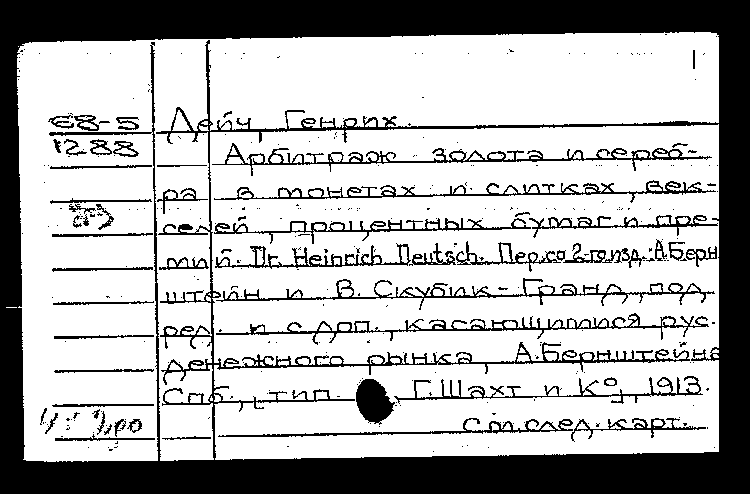 Е8-5 Дейч, Генрих.
1288 Арбитраж золота и сереб-
ра в монетах и слитках, век-
селей, процентных бумаг и пре-
мий. Dr. Heinrich Deutsch. Пер. со 2-го изд. А.Берн
штейн и В. Скубик-Гранд, под
ред. и с доп., касающимися рус.
денежного рынка, А.Бернштейна
Спб., тип. Г.Шахт и К°, 1913.
См.след.карт.